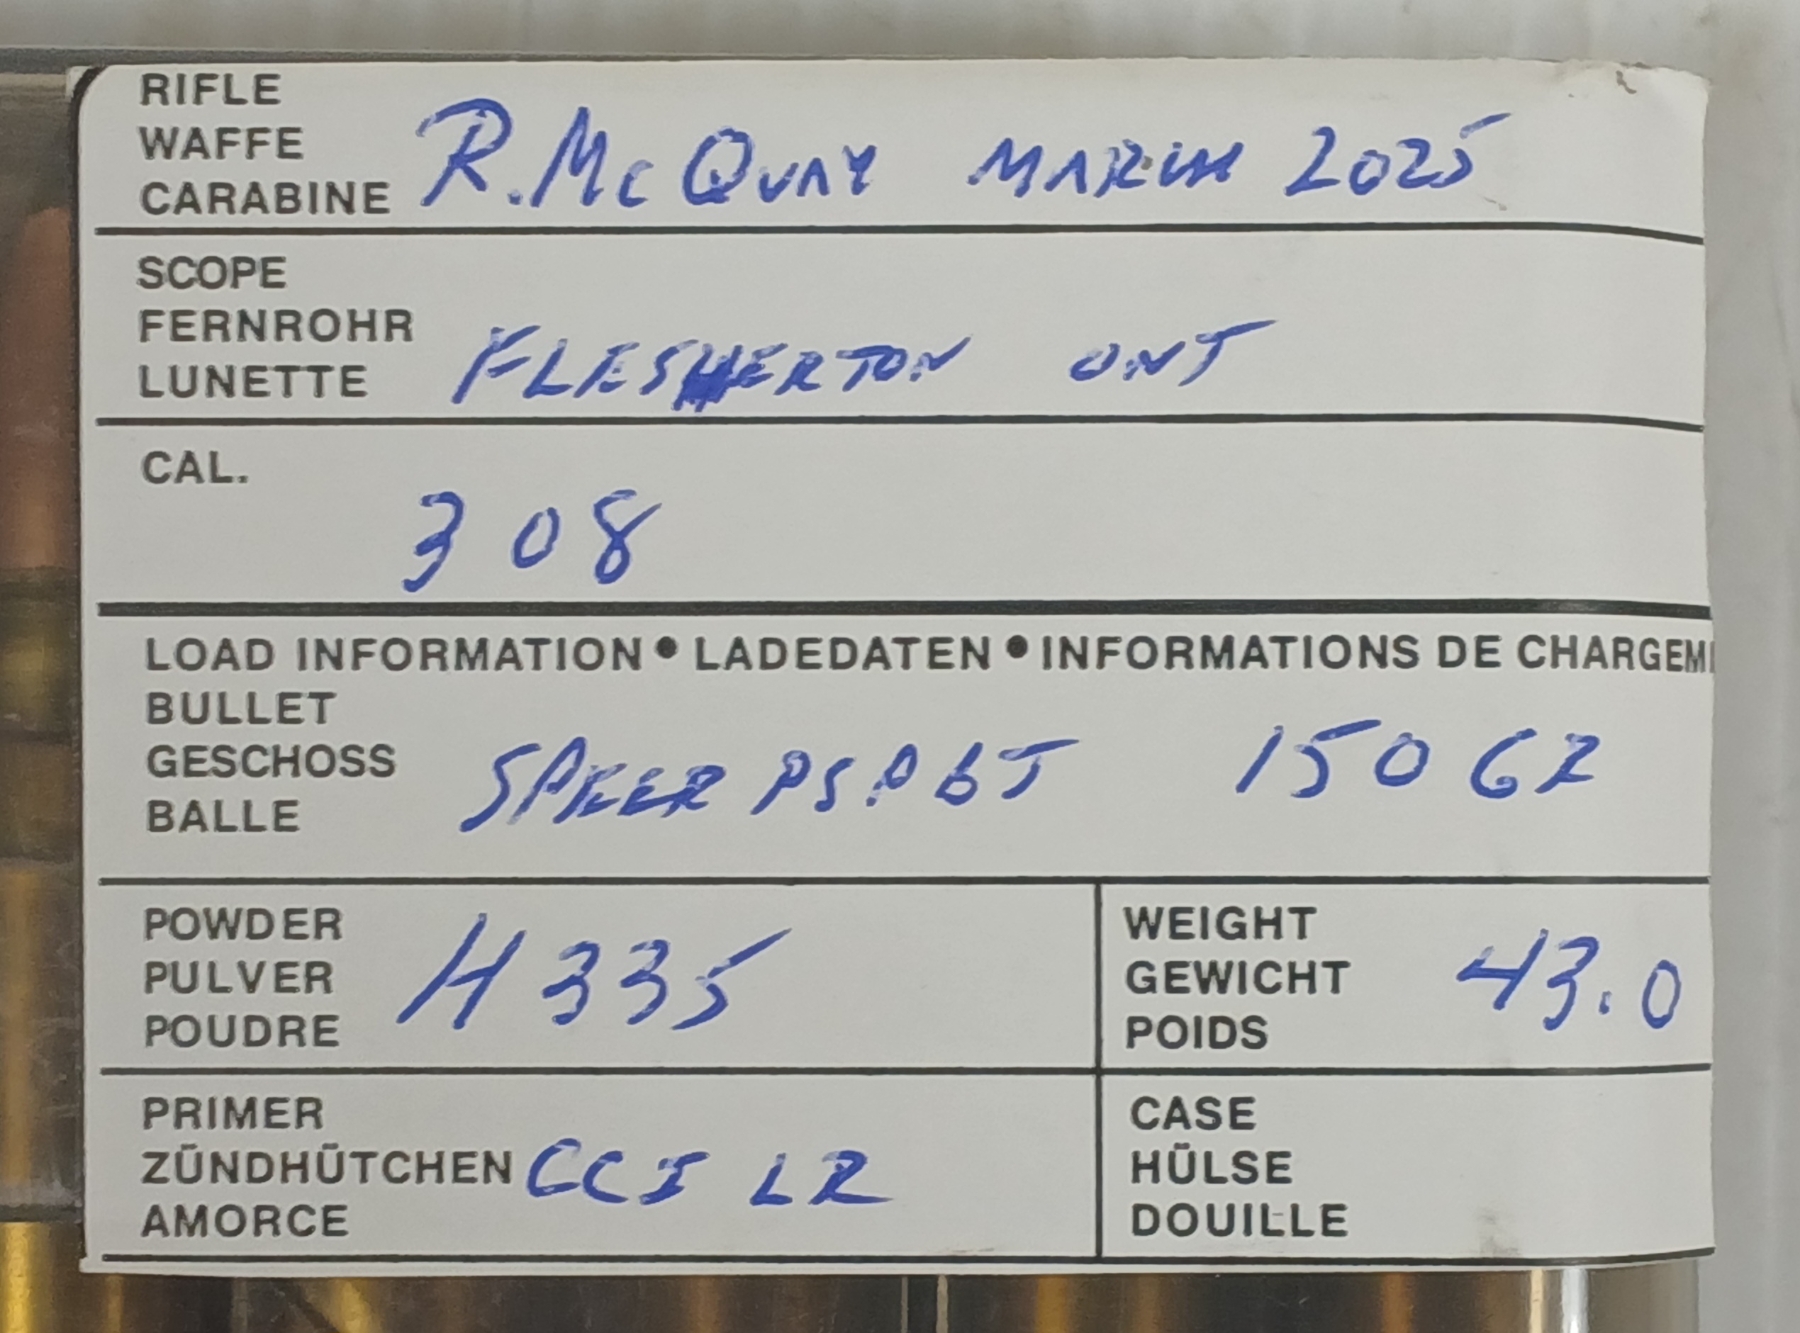 RIFLE
WAFFE
CARABINE
R. McQUAY MARCH 2025
SCOPE
FERNROHR
LUNETTE
FLESHERTON ONT
CAL.
308
LOAD INFORMATION • LADEDATEN • INFORMATIONS DE CHARGEM
BULLET
GESCHOSS
BALLE
SPEER PSPBT 150 GR
POWDER
PULVER
POUDRE
H 335
WEIGHT
GEWICHT
POIDS
43.0
PRIMER
ZÜNDHÜTCHEN
AMORCE
CCI LR
CASE
HÜLSE
DOUILLE